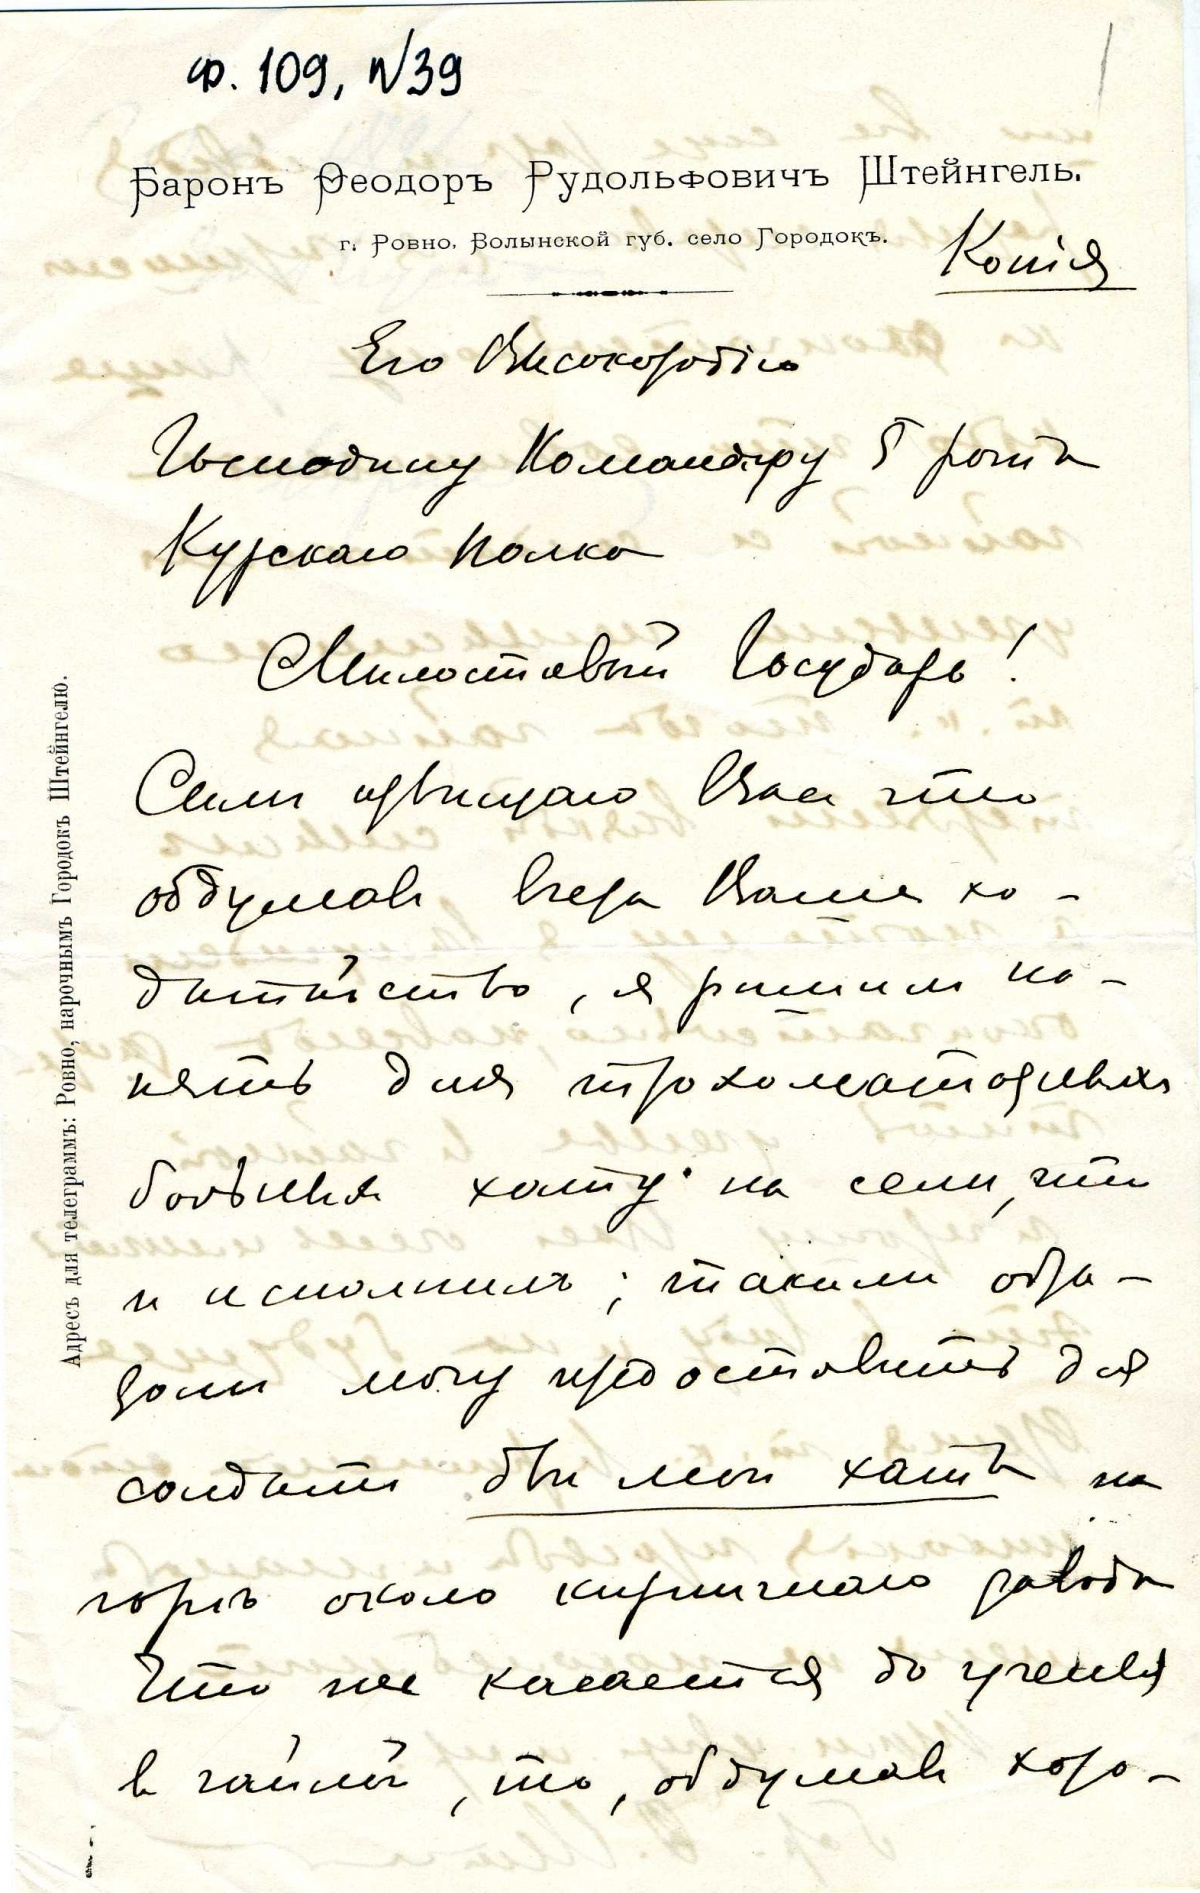 Ф. 109, №39
Баронъ Ѳеодоръ Рудольфовичъ Штейнгель.
г. Ровно, Волынской губ. село Городокъ.
Копія
Его Высокородію
Господину Командиру 5 роты
Курскаго полка
Милостивый Государь!
Симъ извѣщаю Васъ что
обдумавъ вчера Ваше хо-
датайство, я рѣшилъ на-
нять для трахоматозныхъ
больныхъ хату на селѣ, что
и исполнилъ; такимъ обра-
зомъ могу предоставить для
солдатъ двѣ мои хаты на
горѣ около кирпичнаго завода
Что же касается до ученья
въ чайной, то, обдумавъ хоро-
Адресъ для телеграммъ: Ровно, нарочнымъ Городокъ Штейнгелю.